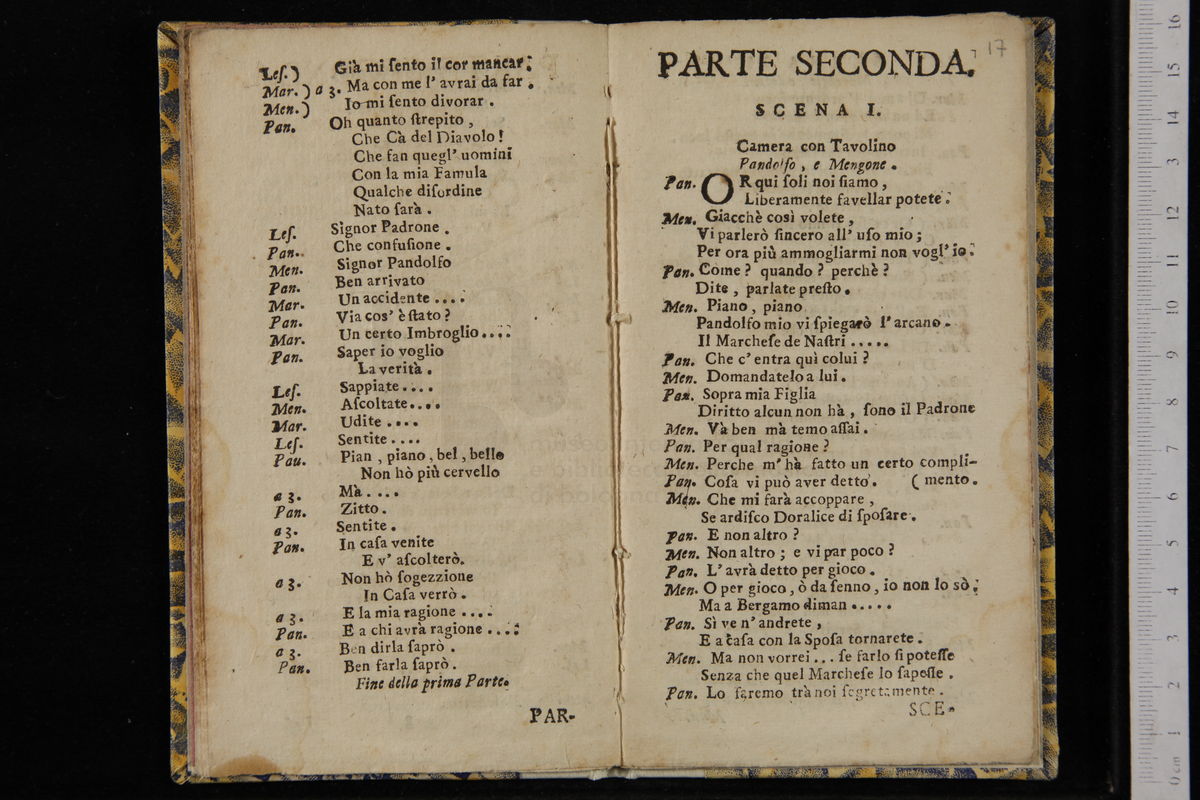 Leſ. ) Già mi ſento il cor mancar:
Mar. ) a 3. Ma con me l' avrai da far.
Men. ) Io mi ſento divorar.
Pan. Oh quanto ſtrepito,
Che Cà del Diavolo!
Che fan quegl' uomini
Con la mia Famula
Qualche diſordine
Nato ſarà.
Leſ. Signor Padrone.
Pan. Che confuſione.
Men. Signor Pandolfo
Pan. Ben arrivato
Mar. Un accidente....
Pan. Via cos' è ſtato?
Mar. Un certo Imbroglio....
Pan. Saper io voglio
La verità.
Leſ. Sappiate....
Men. Aſcoltate....
Mar. Udite....
Leſ. Sentite....
Pau. Pian, piano, bel, bello
Non hò più cervello
a 3. Mà....
Pan. Zitto.
a 3. Sentite.
Pan. In caſa venite
E v' aſcolterò.
a 3. Non hò ſogezzione
In Caſa verrò.
a 3. E la mia ragione....
Pan. E a chi avrà ragione....
a 3. Ben dirla ſaprò.
Pan. Ben farla ſaprò.
Fine della prima Parte.
PAR-
17
PARTE SECONDA.
SCENA I.
Camera con Tavolino
Pandolfo, e Mengone.
Pan. OR qui ſoli noi ſiamo,
Liberamente favellar potete.
Men. Giacchè così volete,
Vi parlerò ſincero all' uſo mio;
Per ora più ammogliarmi non vogl' io.
Pan. Come? quando? perchè?
Dite, parlate preſto.
Men. Piano, piano
Pandolfo mio vi ſpiegarò l' arcano.
Il Marcheſe de Naſtri.....
Pan. Che c' entra quì colui?
Men. Domandatelo a lui.
Pan. Sopra mia Figlia
Diritto alcun non hà, ſono il Padrone
Men. Và ben mà temo aſſai.
Pan. Per qual ragione?
Men. Perche m' hà fatto un certo compli-
Pan. Coſa vi può aver detto. ( mento.
Men. Che mi farà accoppare,
Se ardiſco Doralice di ſpoſare.
Pan. E non altro?
Men. Non altro; e vi par poco?
Pan. L' avrà detto per gioco.
Men. O per gioco, ò da ſenno, io non lo sò;
Ma a Bergamo diman.....
Pan. Sì ve n' andrete,
E a caſa con la Spoſa tornarete.
Men. Ma non vorrei... ſe farlo ſi poteſſe
Senza che quel Marcheſe lo ſapeſſe.
Pan. Lo faremo trà noi ſegretamente.
SCE-